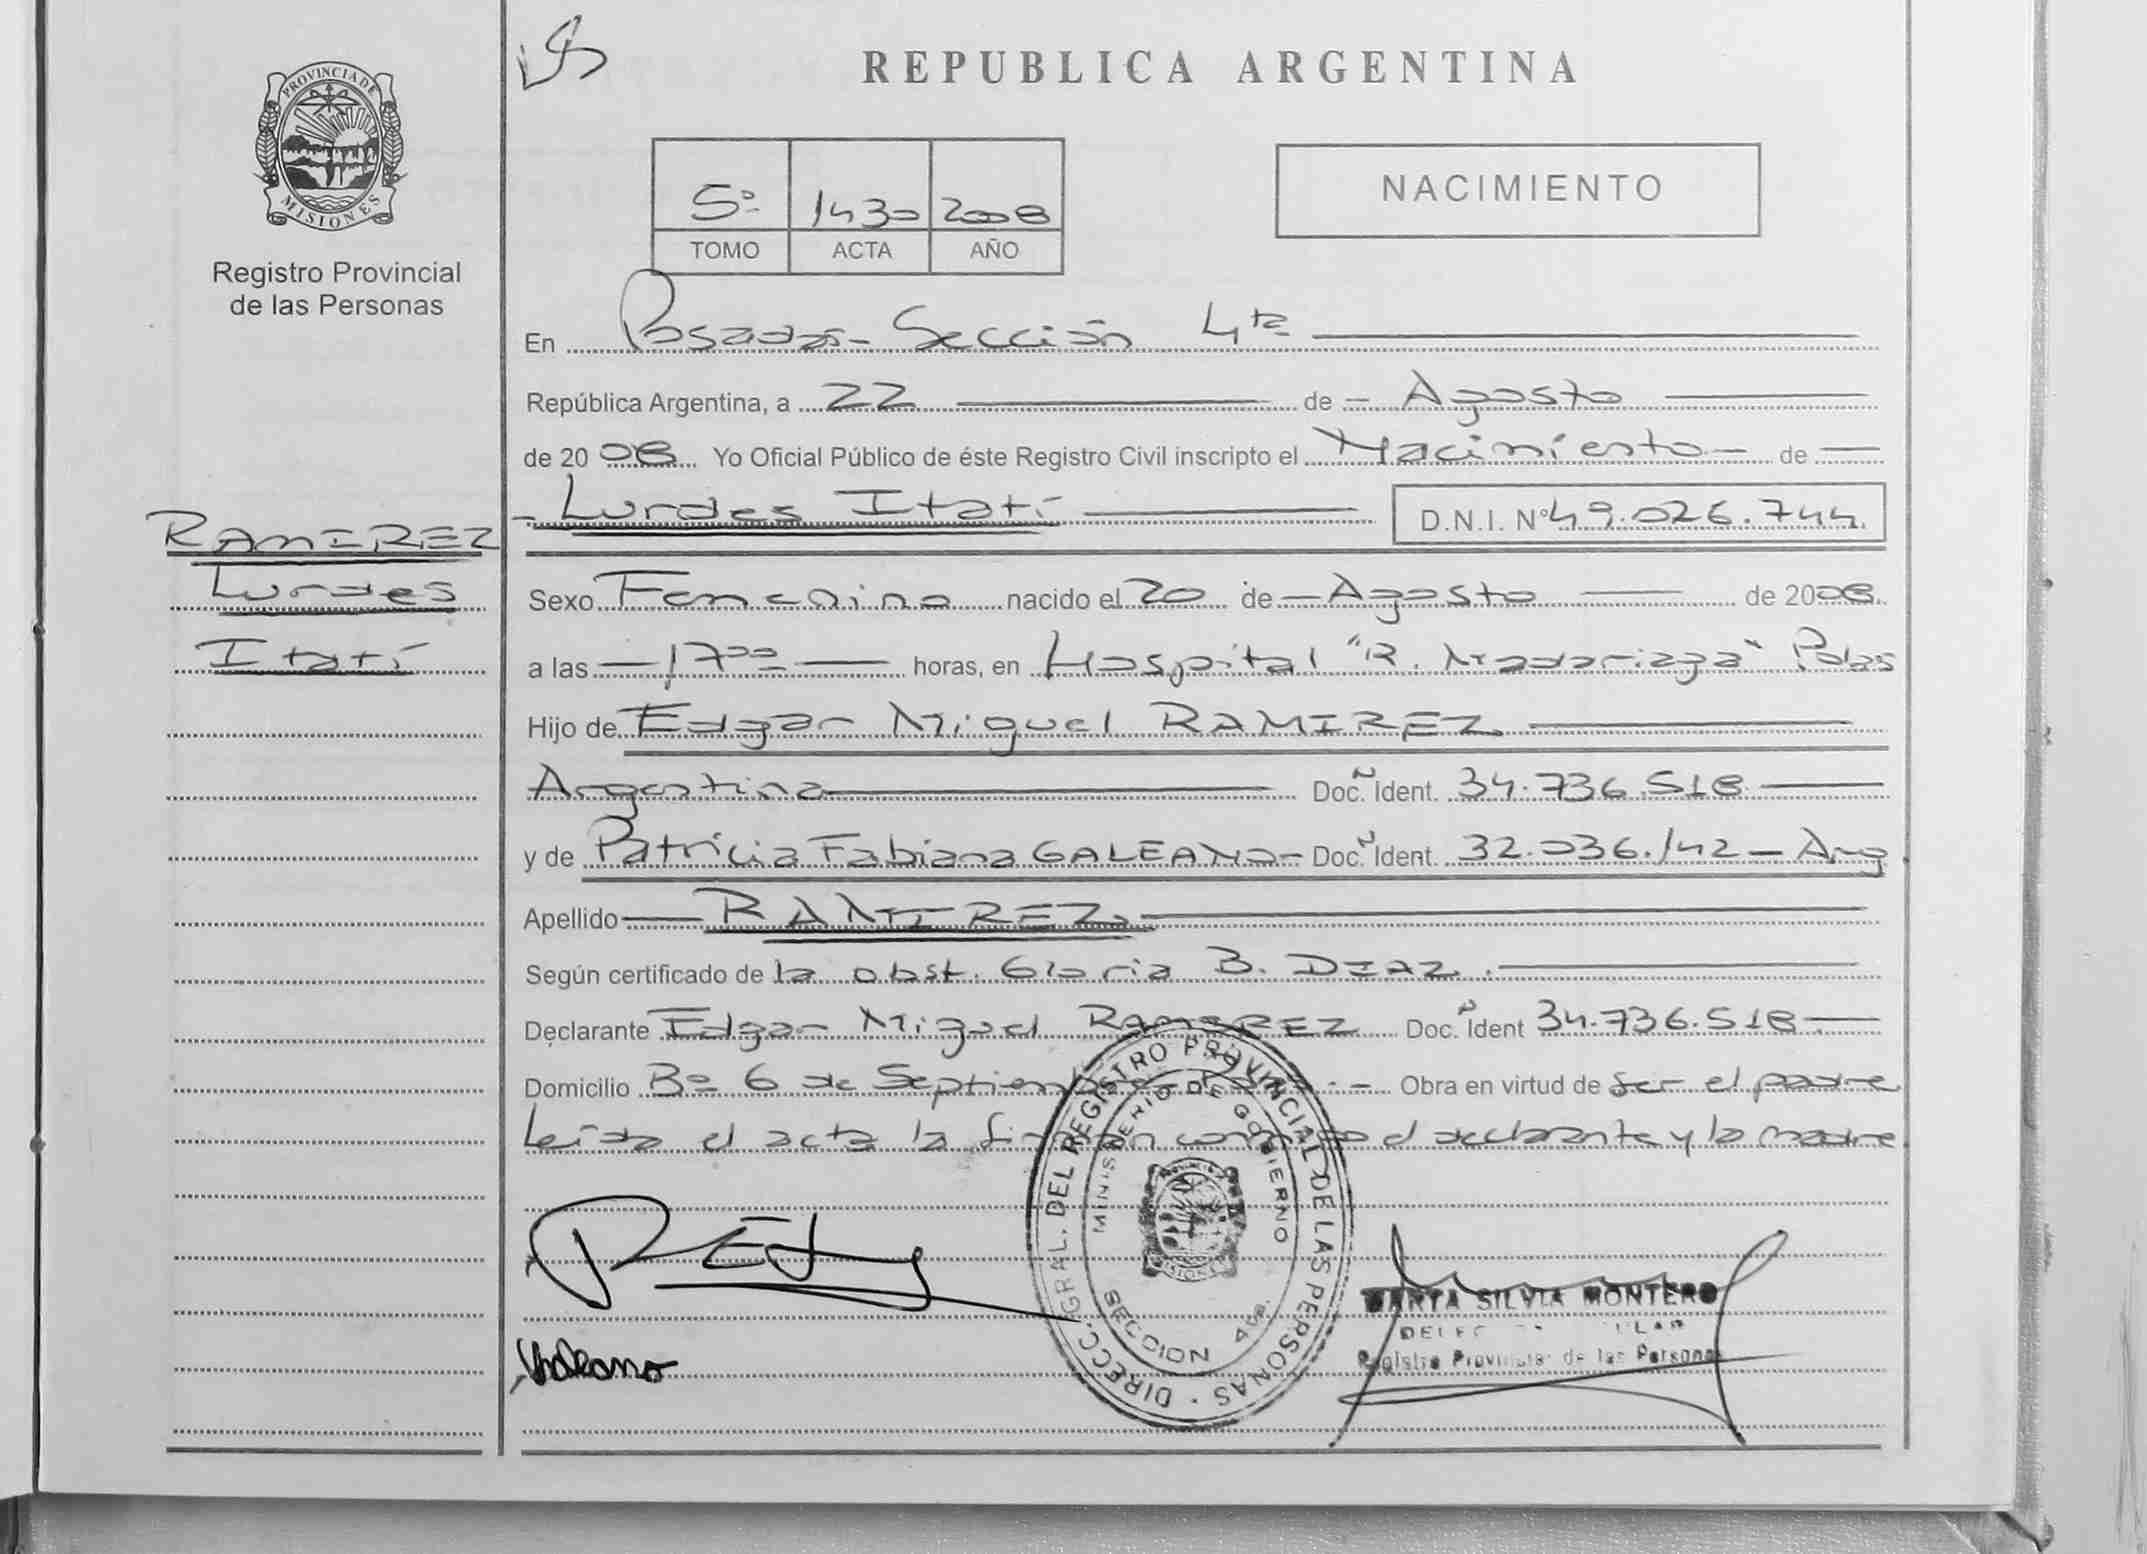 REPUBLICA ARGENTINA
PROVINCIA DE
MISIONES
Registro Provincial
de las Personas
5º 1430 2008
TOMO ACTA AÑO
NACIMIENTO
En Posadas - Sección 4ta
República Argentina, a 22 de - Agosto
de 2008 Yo Oficial Público de éste Registro Civil inscripto el Nacimiento - de
- Lurdes Itatí D.N.I. Nº 49.026.744
RAMIREZ
Lurdes
Itatí
Sexo Femenino nacido el 20 de - Agosto de 2008
a las - 17ºº horas, en Hospital "R. Madariaga" Pdas
Hijo de Edgar Miguel RAMIREZ
Argentina Doc. Ident. 34.736.518
y de Patricia Fabiana GALEANO - Doc. Ident. 32.036.142 - Arg
Apellido RAMIREZ
Según certificado de la obst. Gloria B. DIAZ.
Declarante Edgar Miguel RAMIREZ Doc. Ident 34.736.518
Domicilio Bº 6 de Septiembre - Obra en virtud de ser el padre
Leída el acta la firman conmigo el declarante y la madre
DIRECC. GRAL. DEL REGISTRO PROVINCIAL DE LAS PERSONAS
MINISTERIO DE GOBIERNO
SECCION 4ta.
MISIONES
Galeano
MARTA SILVIA MONTERO
Registro Provincial de las Personas